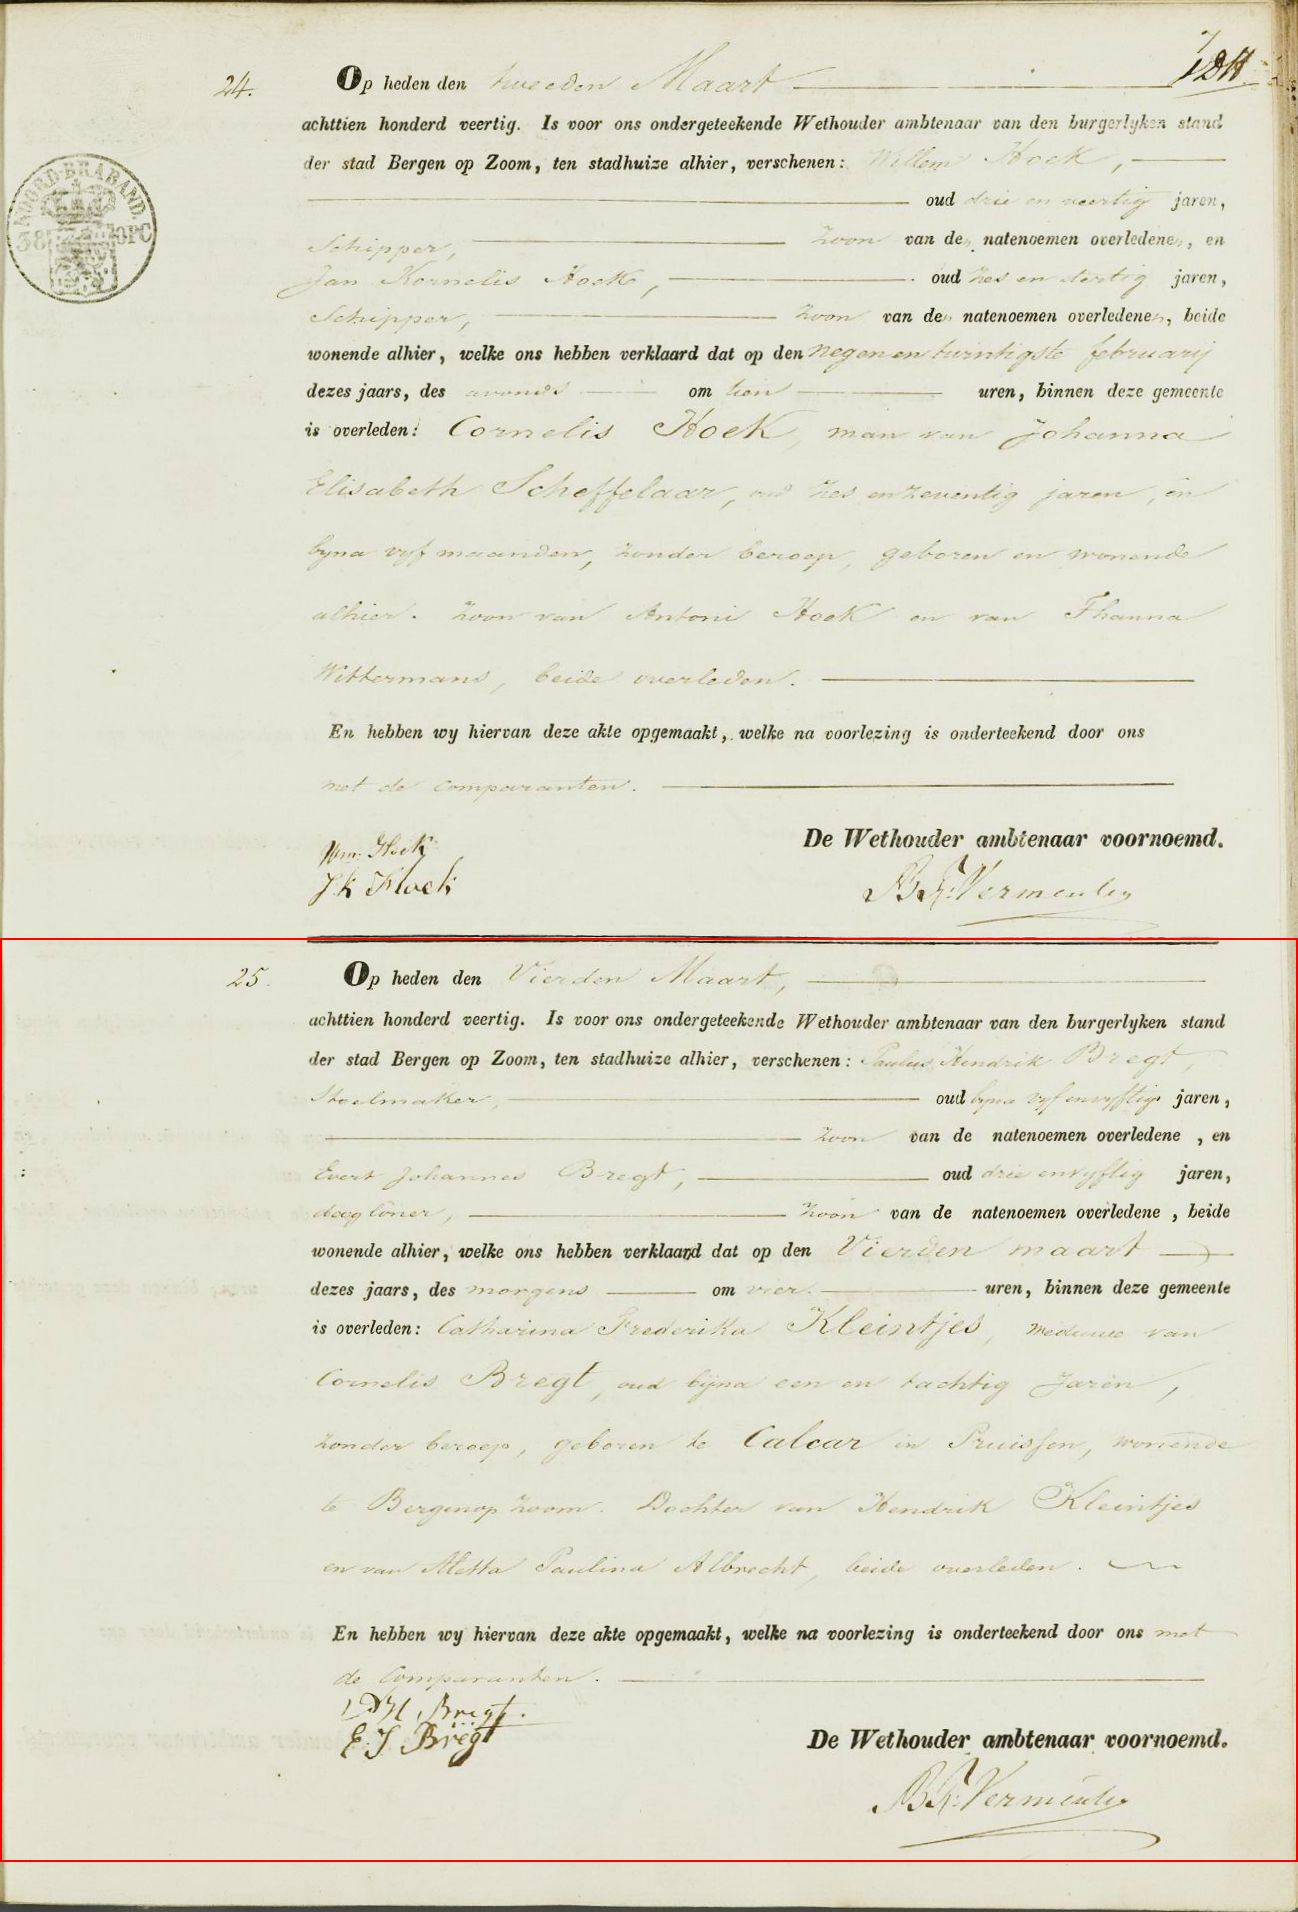 7
1811
24. Op heden den tweeden Maart
achttien honderd veertig. Is voor ons ondergeteekende Wethouder ambtenaar van den burgerlyken stand
der stad Bergen op Zoom, ten stadhuize alhier, verschenen: Willem Hoek,
oud drie en veertig jaren,
Schipper, zoon van den natenoemen overledenen, en
Jan Kornelis Hoek, oud zes en dertig jaren,
Schipper, zoon van den natenoemen overledenen, beide
wonende alhier, welke ons hebben verklaard dat op den negenentwintigste februarij
dezes jaars, des avonds om tien uren, binnen deze gemeente
is overleden: Cornelis Hoek, man van Johanna
Elisabeth Scheffelaar, oud zes enzeventig jaren, en
byna vyf maanden, zonder beroep, geboren en wonende
alhier. zoon van Antoni Hoek en van Jhanna
Wittermans, beide overleden.
En hebben wy hiervan deze akte opgemaakt, welke na voorlezing is onderteekend door ons
met de comparanten.
De Wethouder ambtenaar voornoemd.
Wm. Hoek
J K Hoek
Vermeulen
NOORD-BRABAND.
38 OPC
25. Op heden den Vierden Maart,
achttien honderd veertig. Is voor ons ondergeteekende Wethouder ambtenaar van den burgerlyken stand
der stad Bergen op Zoom, ten stadhuize alhier, verschenen: Paulus Hendrik Bregt,
Stoelmaker, oud byna vyf envyftig jaren,
zoon van de natenoemen overledene, en
Evert Johannes Bregt, oud drie envyftig jaren,
daglöner, zoon van de natenoemen overledene, beide
wonende alhier, welke ons hebben verklaard dat op den Vierden maart
dezes jaars, des morgens om vier uren, binnen deze gemeente
is overleden: Catharina Frederika Kleintjes, weduwe van
Cornelis Bregt, oud bijna een en tachtig Jaren,
zonder beroep, geboren te Calcar in Pruissen, wonende
te Bergenop Zoom. Dochter van Hendrik Kleintjes
en van Aletta Paulina Albrecht, beide overleden.
En hebben wy hiervan deze akte opgemaakt, welke na voorlezing is onderteekend door ons met
de Comparanten.
P H. Bregt.
E. J. Bregt
De Wethouder ambtenaar voornoemd.
Vermeulen